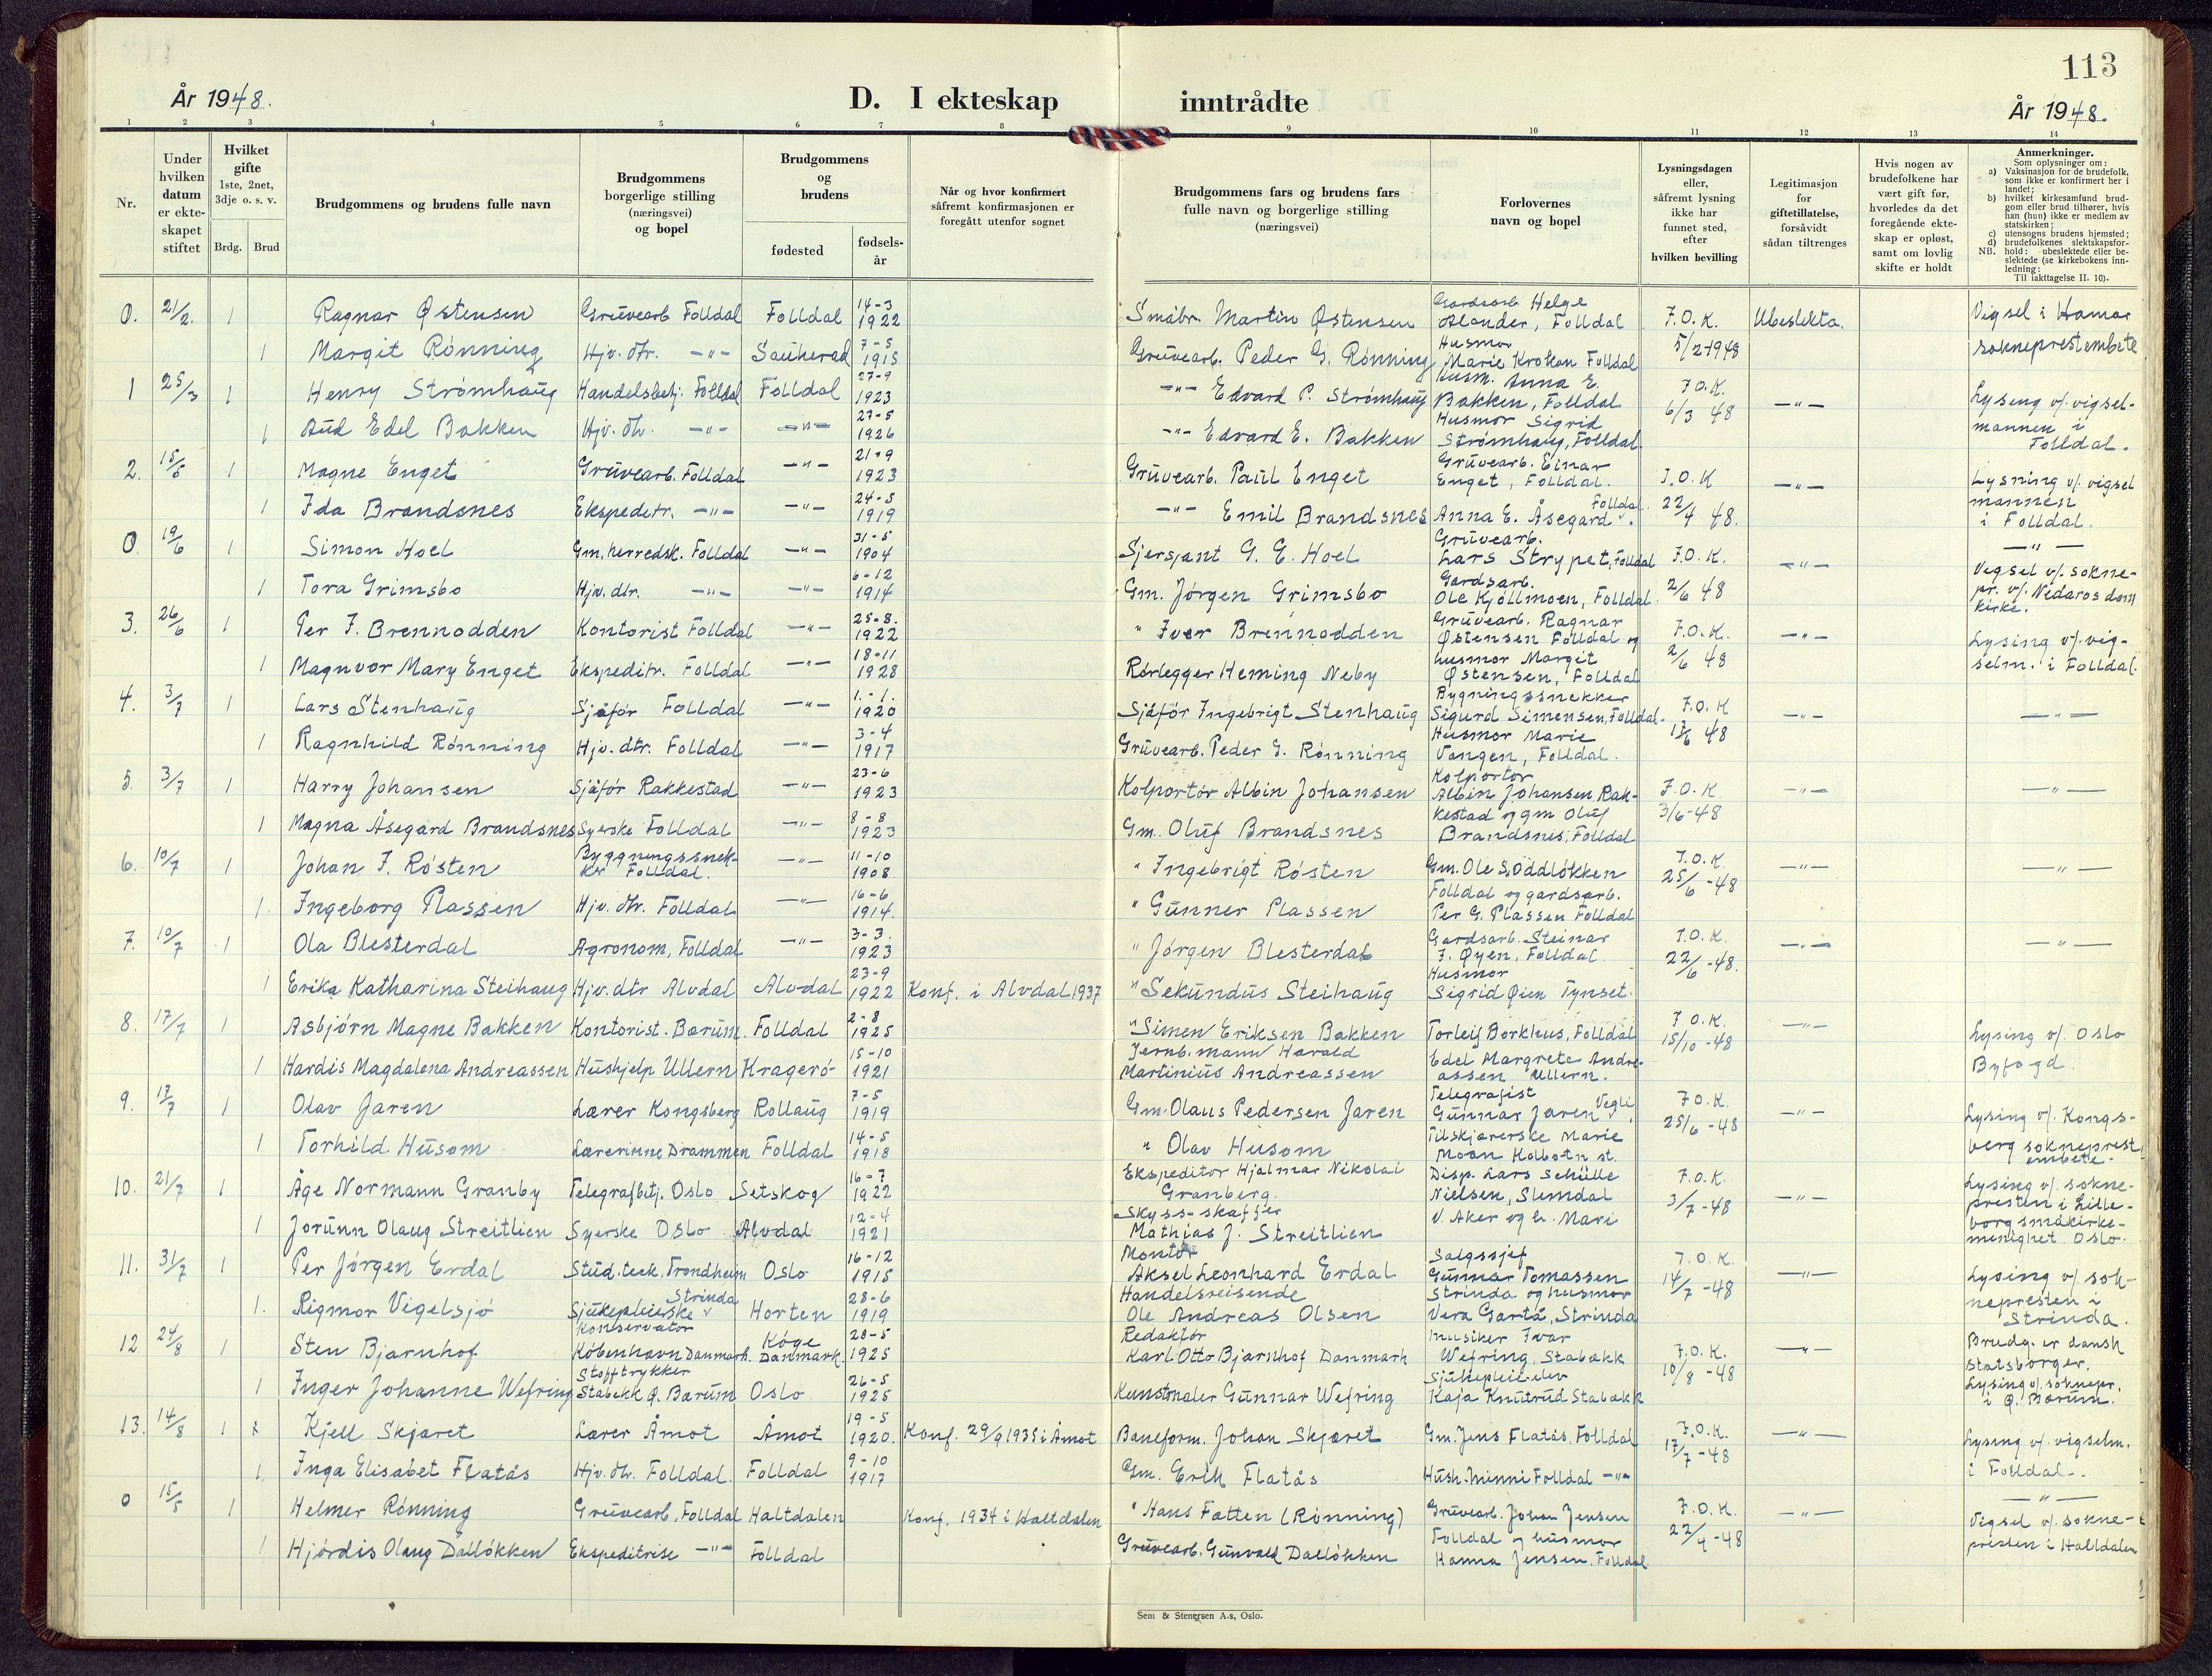 113
År 1948.
D. I ekteskap inntrådte
År 1948.
1 2 3 4 5 6 7 8 9 10 11 12 13 14
Nr.
Under hvilken datum er ekte-skapet stiftet
Hvilket gifte 1ste, 2net, 3dje o. s. v.
Brdg. Brud
Brudgommens og brudens fulle navn
Brudgommens borgerlige stilling (næringsvei) og bopel
Brudgommens og brudens
fødested
fødsels-år
Når og hvor konfirmert såfremt konfirmasjonen er foregått utenfor sognet
Brudgommens fars og brudens fars fulle navn og borgerlige stilling (næringsvei)
Forlovernes navn og bopel
Lysningsdagen eller, såfremt lysning ikke har funnet sted, efter hvilken bevilling
Legitimasjon for giftetillatelse, forsåvidt sådan tiltrenges
Hvis nogen av brudefolkene har vært gift før, hvorledes da det foregående ekte-skap er opløst, samt om lovlig skifte er holdt
Anmerkninger.
Som oplysninger om:
a) Vaksinasjon for de brudefolk, som ikke er konfirmert her i landet;
b) hvilket kirkesamfund brud-gom eller brud tilhører, hvis han (hun) ikke er medlem av statskirken;
c) utensogns brudens hjemsted;
d) brudefolkenes slektskapsfor-hold: ubeslektede eller be-slektede (se kirkebokens inn-ledning:
NB. Til iakttagelse II. 10).
0. 21/2. 1 Ragnar Østensen Gruvearb Folldal Folldal 14-3 1922 Småbr. Martin Østensen Gardsarb Helge Alander, Folldal F.O.K. Ubeslekta. Vigsel i Hamar
1 Margit Rønning Hjv. dtr. -"- Sauherad 7-5 1915 Gruvearb. Peder G. Rønning Husmor Marie Krokan Folldal 5/2-1948 sokneprestembete
1 25/3 1 Henry Strømhaug Handelsbetj. Folldal Folldal 27-9 1923 -"- Edvard P. Strømhaug Husm. Anna E. Bakken, Folldal F.O.K. -"- Lysing v/ vigsel-
1 Aud Edel Bakken Hjv. dtr. -"- -"- 27-5 1926 -"- Edvard E. Bakken Husmor Sigrid Strømhaug, Folldal 6/3 48 mannen i Folldal.
2. 15/5 1 Magne Enget Gruvearb. Folldal -"- 21-9 1923 Gruvearb. Paul Enget Gruvearb. Einar Enget, Folldal. F.O.K -"- Lysning v/ vigsel
1 Ida Brandsnes Ekspeditr. -"- -"- 24-5 1919 -"- Emil Brandsnes Anna E. Åsegard Folldal. 22/4 48. mannen i Folldal.
0 19/6 1 Simon Hoel Gm. herredsk. Folldal -"- 31-5 1904 Sjersjant G. E. Hoel Gruvearb. Lars Strypet, Folldal F.O.K. -"- -"-
1 Tora Grimsbo Hjv. dtr. -"- -"- 6-12 1914 Gm. Jørgen Grimsbo Gardsarb. Ole Kjøllmoen, Folldal. 2/6 48 Vegsel v/ sokne-pr. v/ Nidaros dom kirke.
3. 26/6 1 Per I. Brennodden Kontorist Folldal -"- 25-8. 1922 " Iver Brennodden Gruvearb. Ragnar Østensen Folldal og F.O.K. -"- Lysing v/ vig-
1 Magnvor Mary Enget Ekspeditr. Folldal -"- 18-11 1928 Rørlegger Heming Neby husmor Margit Østensen, Folldal 2/6 48 selm. i Folldal.
4. 3/7 1 Lars Stenhaug Sjåfør Folldal -"- 1.-1. 1920 Sjåfør Ingebrigt Stenhaug Bygningssnekker Sigurd Simensen, Folldal. F.O.K -"- -"-
1 Ragnhild Rønning Hjv. dtr. Folldal -"- 3-4 1917 Gruvearb. Peder G. Rønning Husmor Marie Vangen, Folldal. 17/6 48
5. 3/7 1 Harry Johansen Sjåfør Rakkestad -"- 23-6 1923 Kolportør Albin Johansen Kolportør Albin Johansen Rak- F.O.K. -"- -"-
1 Magna Åsegård Brandsnes Syerske Folldal -"- 8-8 1923 Gm. Oluf Brandsnes kestad og gm Oluf Brandsnes, Folldal 3/6-48
6. 10/7 1 Johan I. Røsten Byggningssnek-ker Folldal. -"- 11-10 1908 " Ingebrigt Røsten Gm. Ole S. Oddløkken F.O.K. -"- -"-
1. Ingeborg Plassen Hjv. dtr. Folldal -"- 16-6 1914. " Gunner Plassen Folldal og gardsarb. Per G. Plassen Folldal 25/6-48
7. 10/7 1 Ola Blesterdal Agronom, Folldal -"- 3-3. 1923 " Jørgen Blesterdal Gardsarb. Steinar J. Øyen, Folldal F.O.K. -"- -"-
1 Erika Katharina Steihaug Hjv. dtr Alvdal Alvdal 23-9 1922 Konf. i Alvdal 1937 " Sekundus Steihaug Husmor Sigrid Øien Tynset. 22/6-48.
8. 17/7 1 Asbjørn Magne Bakken Kontorist. Bærum. Folldal 2-8 1925 " Simen Eriksen Bakken Torleif Borkhus, Folldal F.O.K. -"- Lysing v/ Oslo
1 Hardis Magdalena Andreassen Hushjelp Ullern Kragerø 15-10 1921 Jernb. mann Harald Martinius Andreassen Edel Margrete Andre-assen Ullern. 15/10-48 Byfogd.
9. 17/7 1 Olav Jaren Lærer Kongsberg Rollaug 7-5 1919 Gm. Olaus Pedersen Jaren Telegrafist Gunnar Jaren Vegli F.O.K. -"- Lysing v/ Kongs-
1 Torhild Husom Lærerinne Drammen Folldal 14-5 1918 " Olav Husom Tilskjærerske Marie Moan Kolbotn st. 25/6-48 berg sokneprest embete.
10. 21/7 1 Åge Normann Granby Telegrafbtj. Oslo Setskog 16-7 1922 Ekspeditør Hjalmar Nikolai Granberg. Disp. Lars Schülle Nielsen, Slemdal F.O.K. -"- Lysing v/ sokne-presten i Lille-
1 Jorunn Olaug Streitlien Syerske Oslo Alvdal 12-4 1921 Skyss-skaffer Mathias J. Streitlien V. Aker og h. Mari 3/7-48 borg småkirke-menighet Oslo.
11. 31/7 1 Per Jørgen Erdal Stud. teck. Trondheim Oslo 16-12 1915 Montør Aksel Leonhard Erdal Salgssjef Gunnar Tomassen F.O.K. -"- Lysing v/ sok-
1. Rigmor Vigelsjø Sjukepleierske Strinda Horten 28-6 1919 Handelsreisende Ole Andreas Olsen Strinda og husmor Vera Gartå, Strinda 14/7-48 nepresten i Strinda.
12 24/8 1 Sten Bjarnhof Konservator København Danmark. Køge Danmark. 28-5 1925 Redaktør Karl Otto Bjarnhof Danmark Musiker Ivar Wefring, Stabækk F.O.K. -"- Brudg. er dansk statsborger.
1 Inger Johanne Wefring Stofftrykker Stabekk Ø. Bærum Oslo. 26-5 1925 Kunstmaler Gunnar Wefring Sjukepleieelev Kaja Knutrud Stabækk 10/8-48 Lysing v/ soknepr. i Ø. Bærum.
13. 14/8 1 Kjell Skjæret Lærer Åmot Åmot 19-5 1920. Konf. 29/9 1935 i Åmot Baneform. Johan Skjæret Gm. Jens Flatås, Folldal F.O.K. -"- Lysing v/ vigselm.
1. Inga Elisabet Flatås Hjv. dtr. Folldal. Folldal 9-10 1917 Gm. Erik Flatås Hush. Minni Folldal -"- 17/7-48 i Folldal.
0 15/5 1 Helmer Rønning Gruvearb. Folldal Haltdalen Konf. 1934 i Haltdalen " Hans Fatten (Rønning) Gruvearb. Johan Jensen F.O.K. -"- -"- Vigsel v/ sokne-
1 Hjørdis Olaug Dalløkken Ekspeditrise -"- Folldal Gruvearb. Gunvald Dalløkken Folldal og husmor Hanna Jensen. Folldal 22/4-48 presten i Haltdalen
Sem & Stenersen A.s, Oslo.